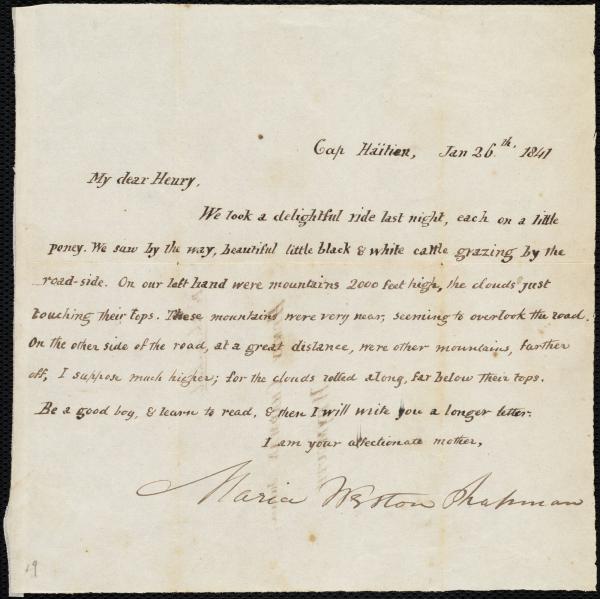 Cap Häitien, Jan 26.th 1841
My dear Henry,
We took a delightful ride last night, each on a little
poney. We saw by the way, beautiful little black & white cattle grazing by the
road-side. On our left hand were mountains 2000 feet high, the clouds just
touching their tops. These mountains were very near, seeming to overlook the road.
On the other side of the road, at a great distance, were other mountains, farther
off, I suppose much higher; for the clouds rolled along, far below their tops.
Be a good boy, & learn to read, & then I will write you a longer letter.
I am your affectionate mother,
Maria Weston Chapman
19